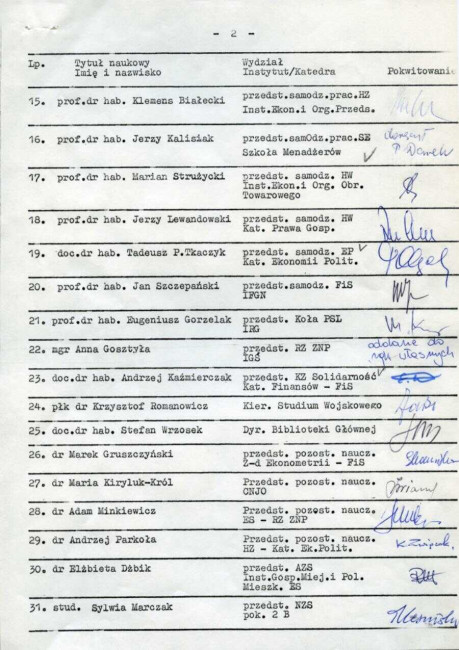 - 2 -
Lp. Tytuł naukowy Wydział
Imię i nazwisko Instytut/Katedra Pokwitowanie
15. prof.dr hab. Klemens Białecki przedst.samodz.prac.HZ
Inst.Ekon.i Org.Przeds.
16. prof.dr hab. Jerzy Kalisiak przedst.samOdz.prac.SE
Szkoła Menadżerów
17. prof.dr hab. Marian Strużycki przedst. samodz. HW
Inst.Ekon.i Org. Obr.
Towarowego
18. prof.dr hab. Jerzy Lewandowski przedst. samodz. HW
Kat. Prawa Gosp.
19. doc.dr hab. Tadeusz P.Tkaczyk przedst. samodz. EP
Kat. Ekonomii Polit.
20. prof.dr hab. Jan Szczepański przedst.samodz. FiS
IFGN
21. prof.dr hab. Eugeniusz Gorzelak przedst. Koła PSL
IRG
22. mgr Anna Gosztyła przedst. RZ ZNP oddano do
IGS rąk własnych
23. doc.dr hab. Andrzej Kaźmierczak przedst. KZ Solidarność
Kat. Finansów - FiS
24. płk dr Krzysztof Romanowicz Kier. Studium Wojskowego
25. doc.dr hab. Stefan Wrzosek Dyr. Biblioteki Głównej
26. dr Marek Gruszczyński przedst. pozost. naucz.
Z-d Ekonometrii - FiS
27. dr Maria Kiryluk-Król Przedst. pozost. naucz.
CNJO
28. dr Adam Minkiewicz Przedst. pozost. naucz.
ES - RZ ZNP
29. dr Andrzej Parkoła Przedst. pozost. naucz.
HZ - Kat. Ek.Polit.
30. dr Elżbieta Dżbik przedst. AZS
Inst.Gosp.Miej.i Pol.
Mieszk. ES
31. stud. Sylwia Marczak przedst. NZS
pok. 2 B